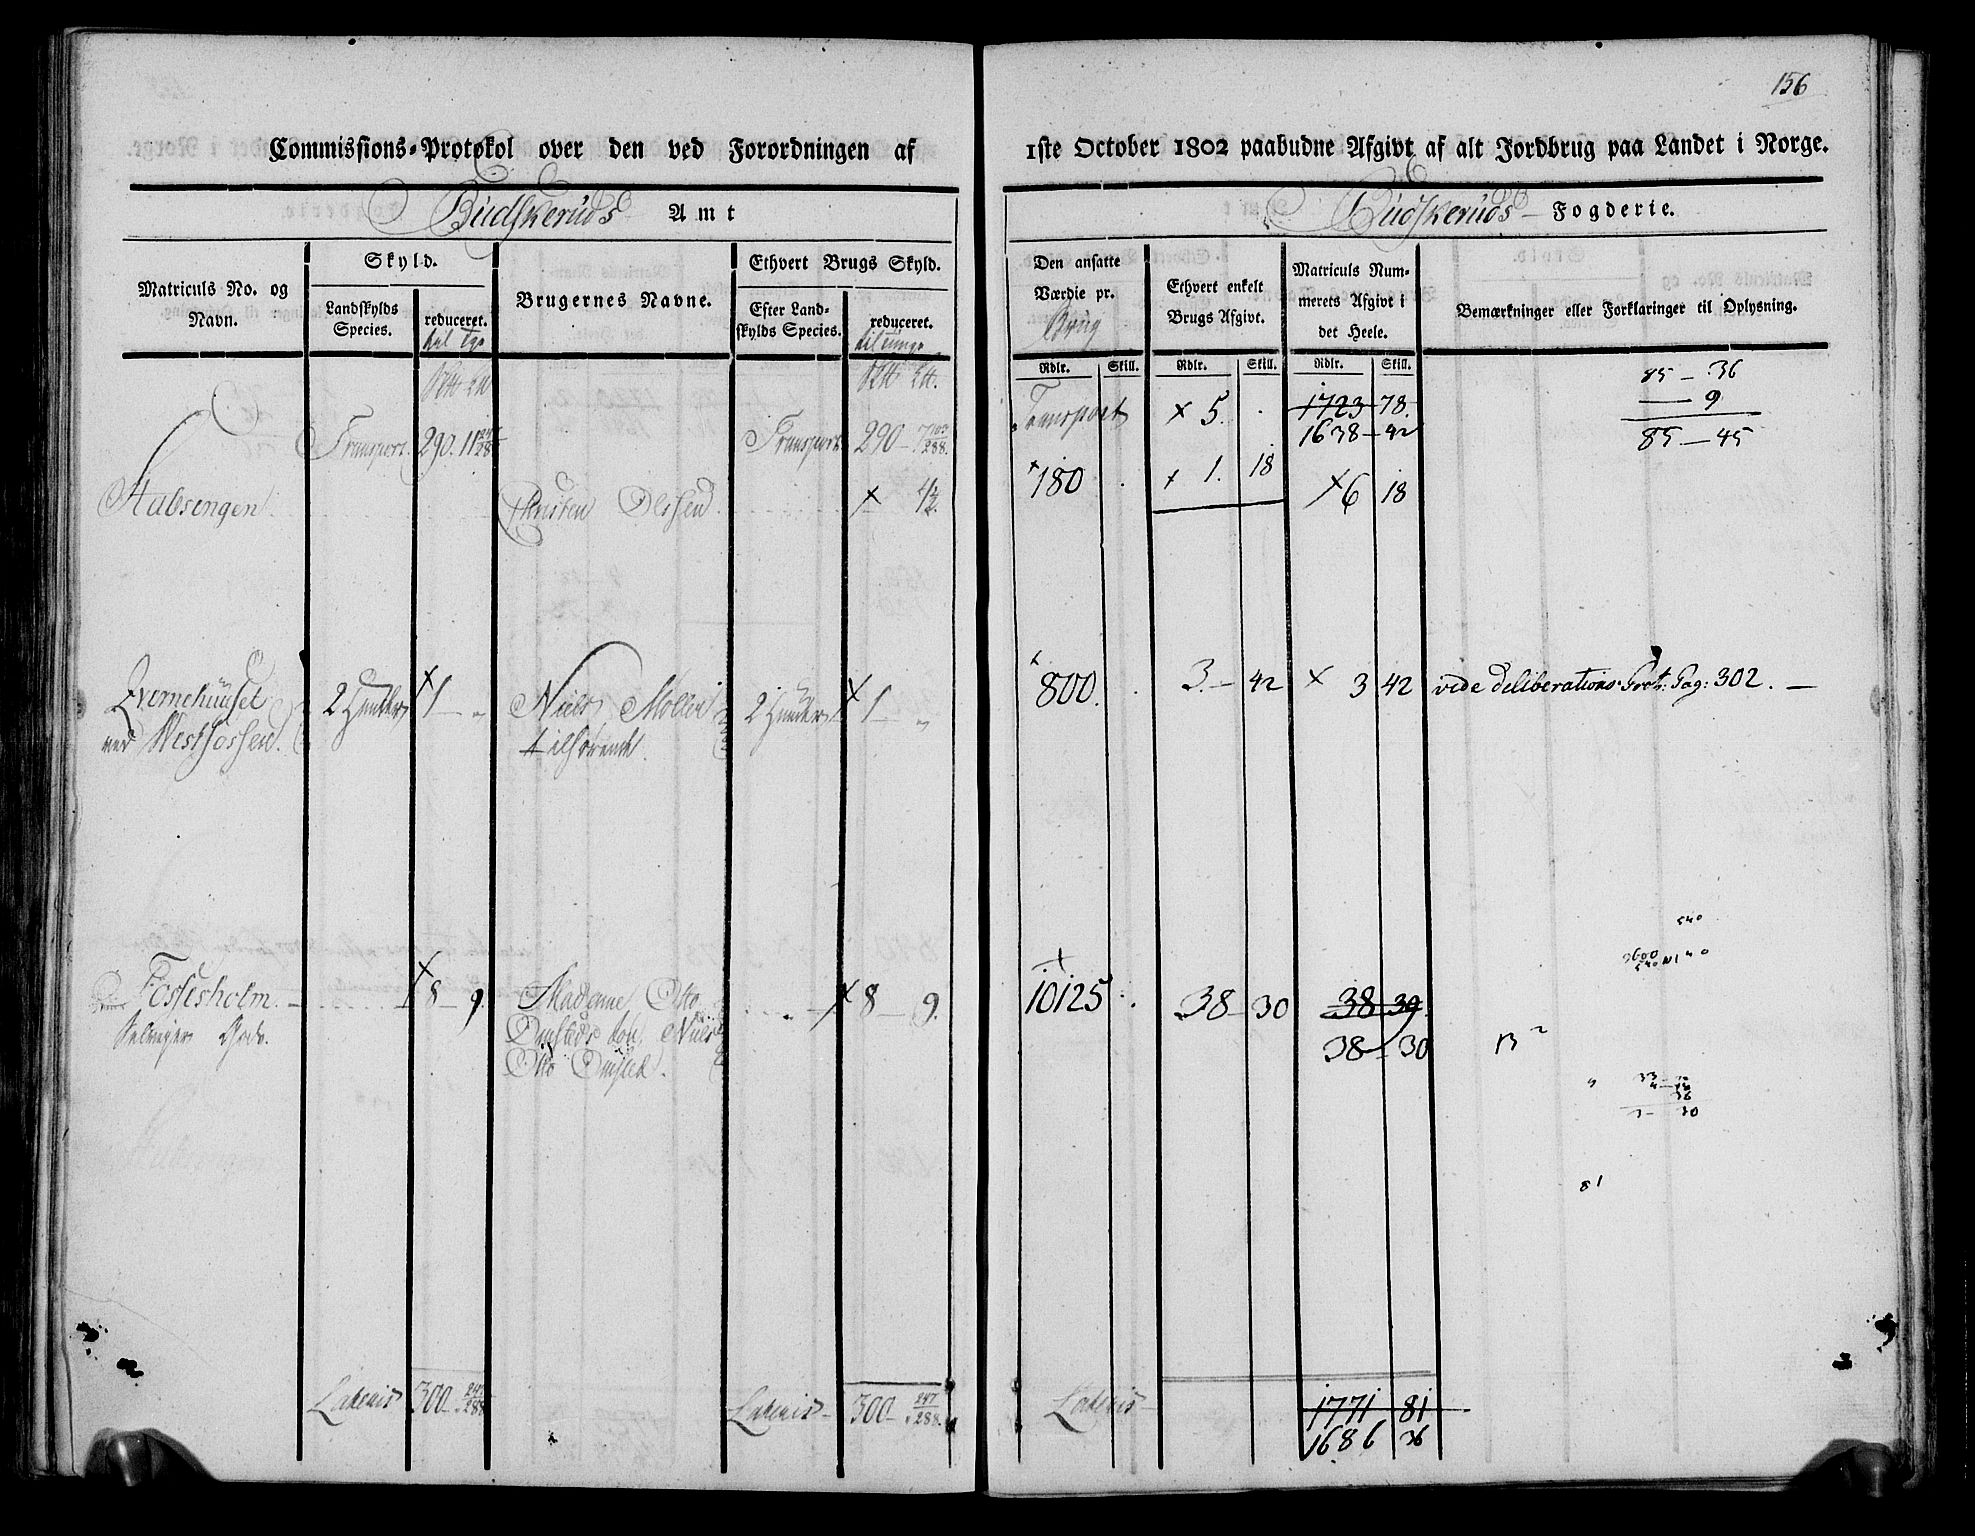 156
Commissions-Protokol over den ved Forordningen af
1ste October 1802 paabudne Afgivt af alt Jordbrug paa Landet i Norge.
Budskeruds Amt
Budskeruds Fogderie.
Matriculs No. og Navn.
Skyld.
Landskylds Species.
reduceret.
Brugernes Navne.
Ethvert Brugs Skyld.
Efter Landskylds Species.
reduceret.
Den ansatte Værdie pr. Brug
Ethvert enkelt Brugs Afgivt.
Matriculs Nummerets Afgivt i det Heele.
Bemærkninger eller Forklaringer til Oplysning.
Rdlr. Skill. Rdlr. Skill. Rdlr. Skill.
Transport 290. 11 247/288 Transport 290
Transport × 5. 1723 78.
1638 - 42
85 - 36
9
85 - 45
Stabsengen Christen Olssen × 4½. × 180 × 1. 18 × 6 18
Qvernehuuset 2 Hunder × 1 Niels Moller 2 Hunder × 1 × 800. 3. - 42 × 3 42 vide deliberations Prot: Pag: 302. -
ved Westfossen. tilhørende.
Fossesholm × 8 - 9. Madame Otto × 8 - 9. 10125 38 - 30 38 - 39
Omsteds Niels 38 - 30
Otto Omsted.
540
3600
81
Lateris 300 - 247/288 Lateris 300 - 247/288. Lateris 1771 81
1686 36